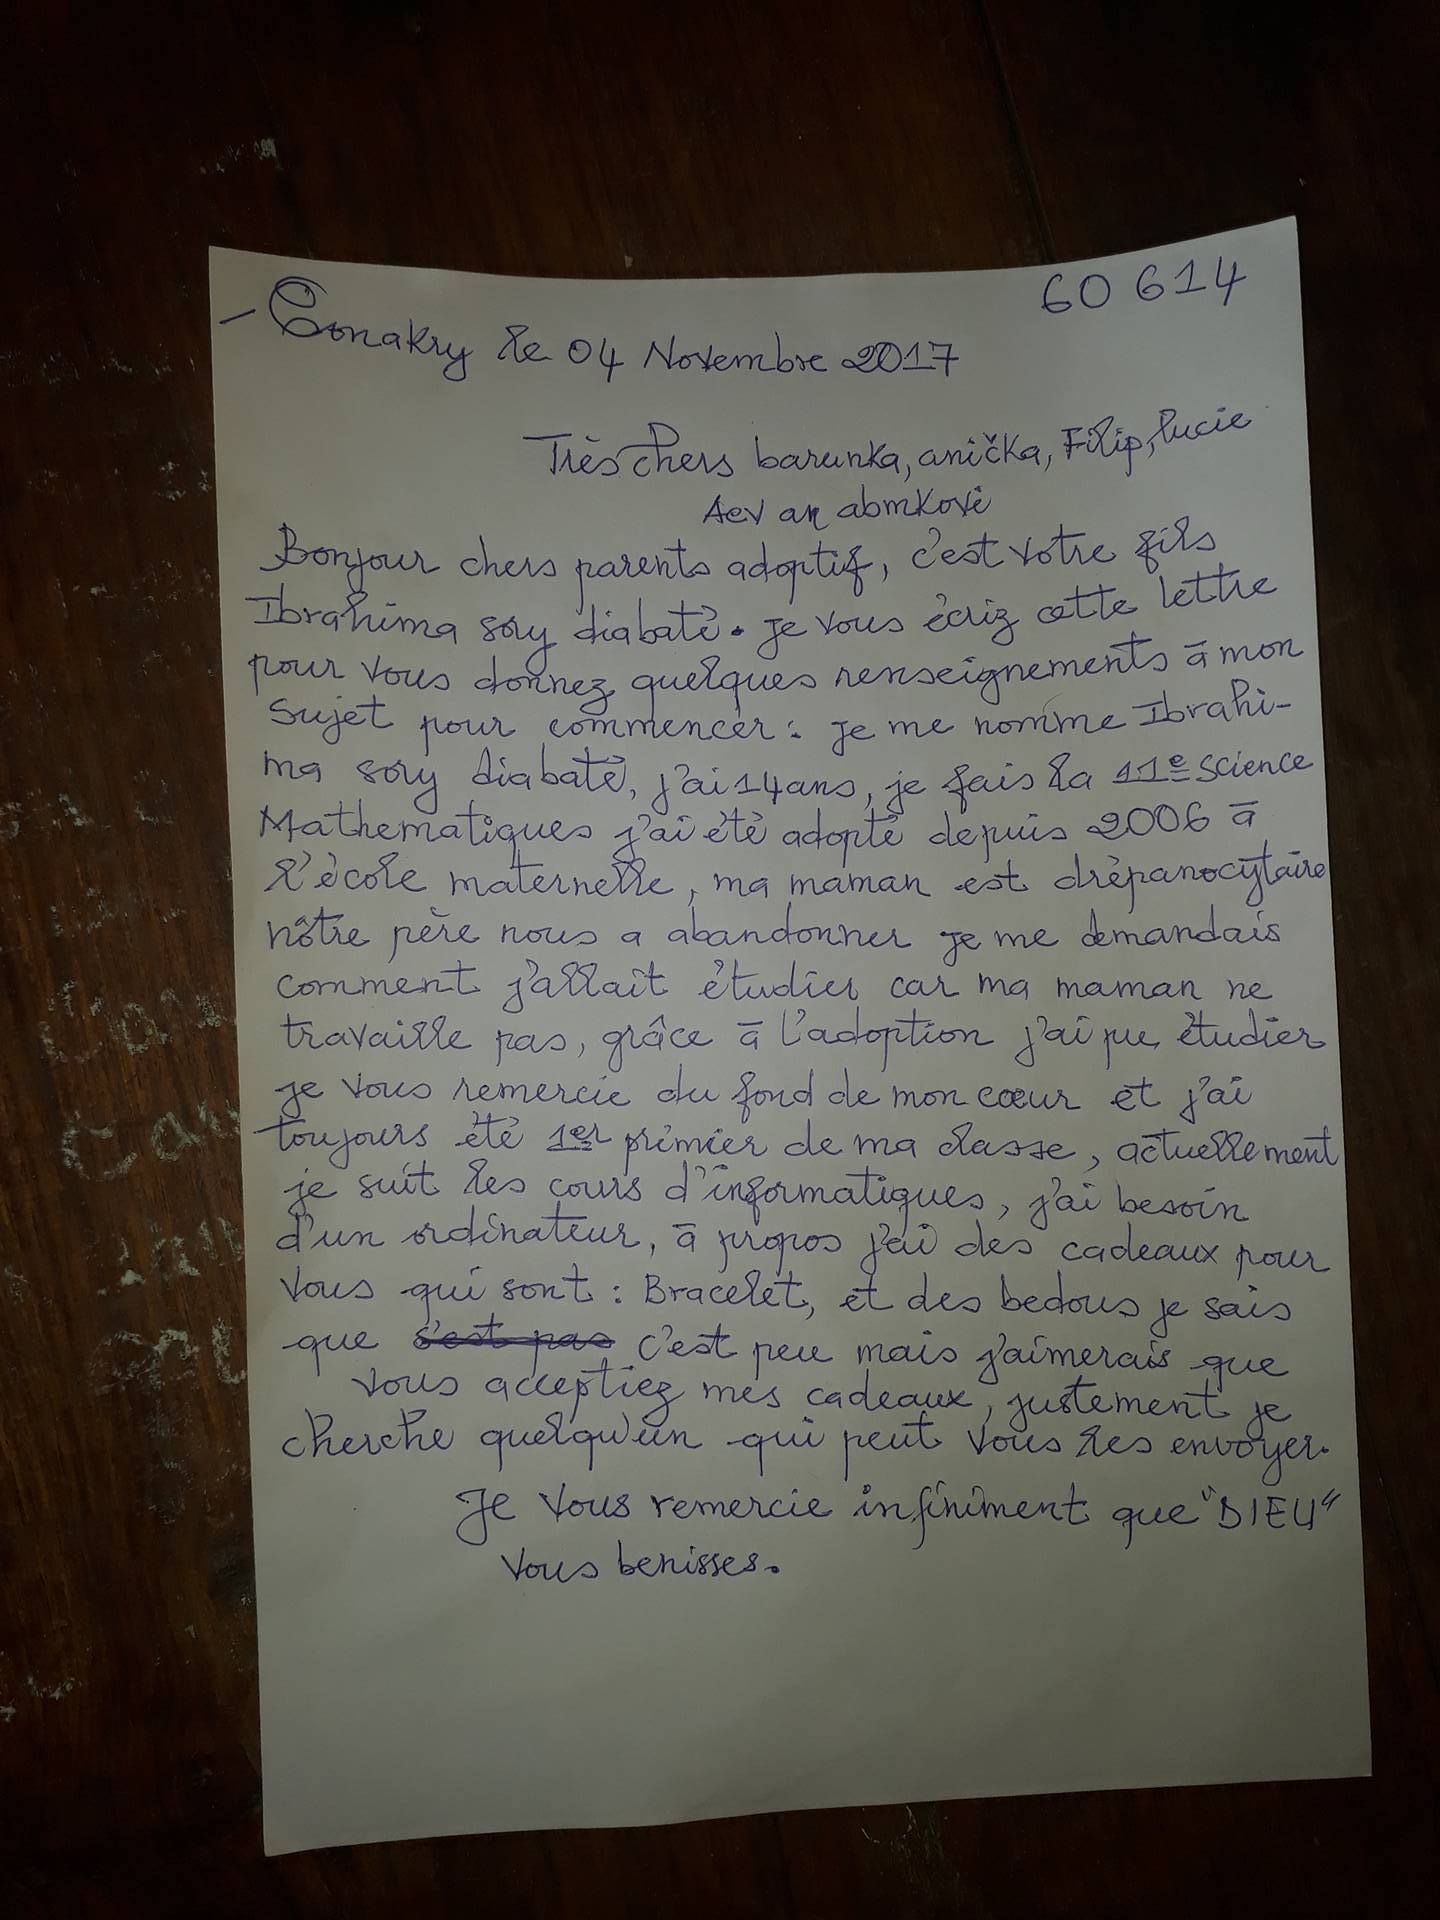 60 614
- Conakry le 04 Novembre 2017
Très chers barunka, anička, Filip, lucie
Aev an abmkovi
Bonjour chers parents adoptif, c'est votre fils
Ibrahima sory diabaté. je vous écriz cette lettre
pour vous donnez quelques renseignements à mon
sujet pour commencer : je me nomme Ibrahi-
ma sory diabaté, j'ai 14 ans, je fais la 11e science
Mathematiques j'ai été adopté depuis 2006 à
l'école maternelle, ma maman est drépanocytaire
nôtre père nous a abandonner je me demandais
comment j'allait étudier car ma maman ne
travaille pas, grâce à l'adoption j'ai pu étudier
je vous remercie du fond de mon cœur et j'ai
toujours été 1er prémier de ma classe, actuellement
je suit les cours d'informatiques, j'ai besoin
d'un ordinateur, à propos j'ai des cadeaux pour
vous qui sont : Bracelet, et des bedous je sais
que s'est pas c'est peu mais j'aimerais que
vous acceptiez mes cadeaux, justement je
cherche quelqu'un qui peut vous les envoyer.
Je vous remercie infiniment que "DIEU"
vous benisses.